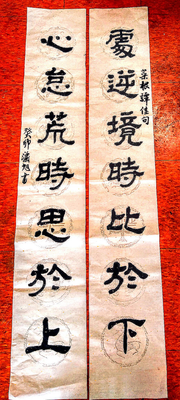 處逆境時比於下
菜根譚佳句
心怠荒時思於上
癸卯 旭書